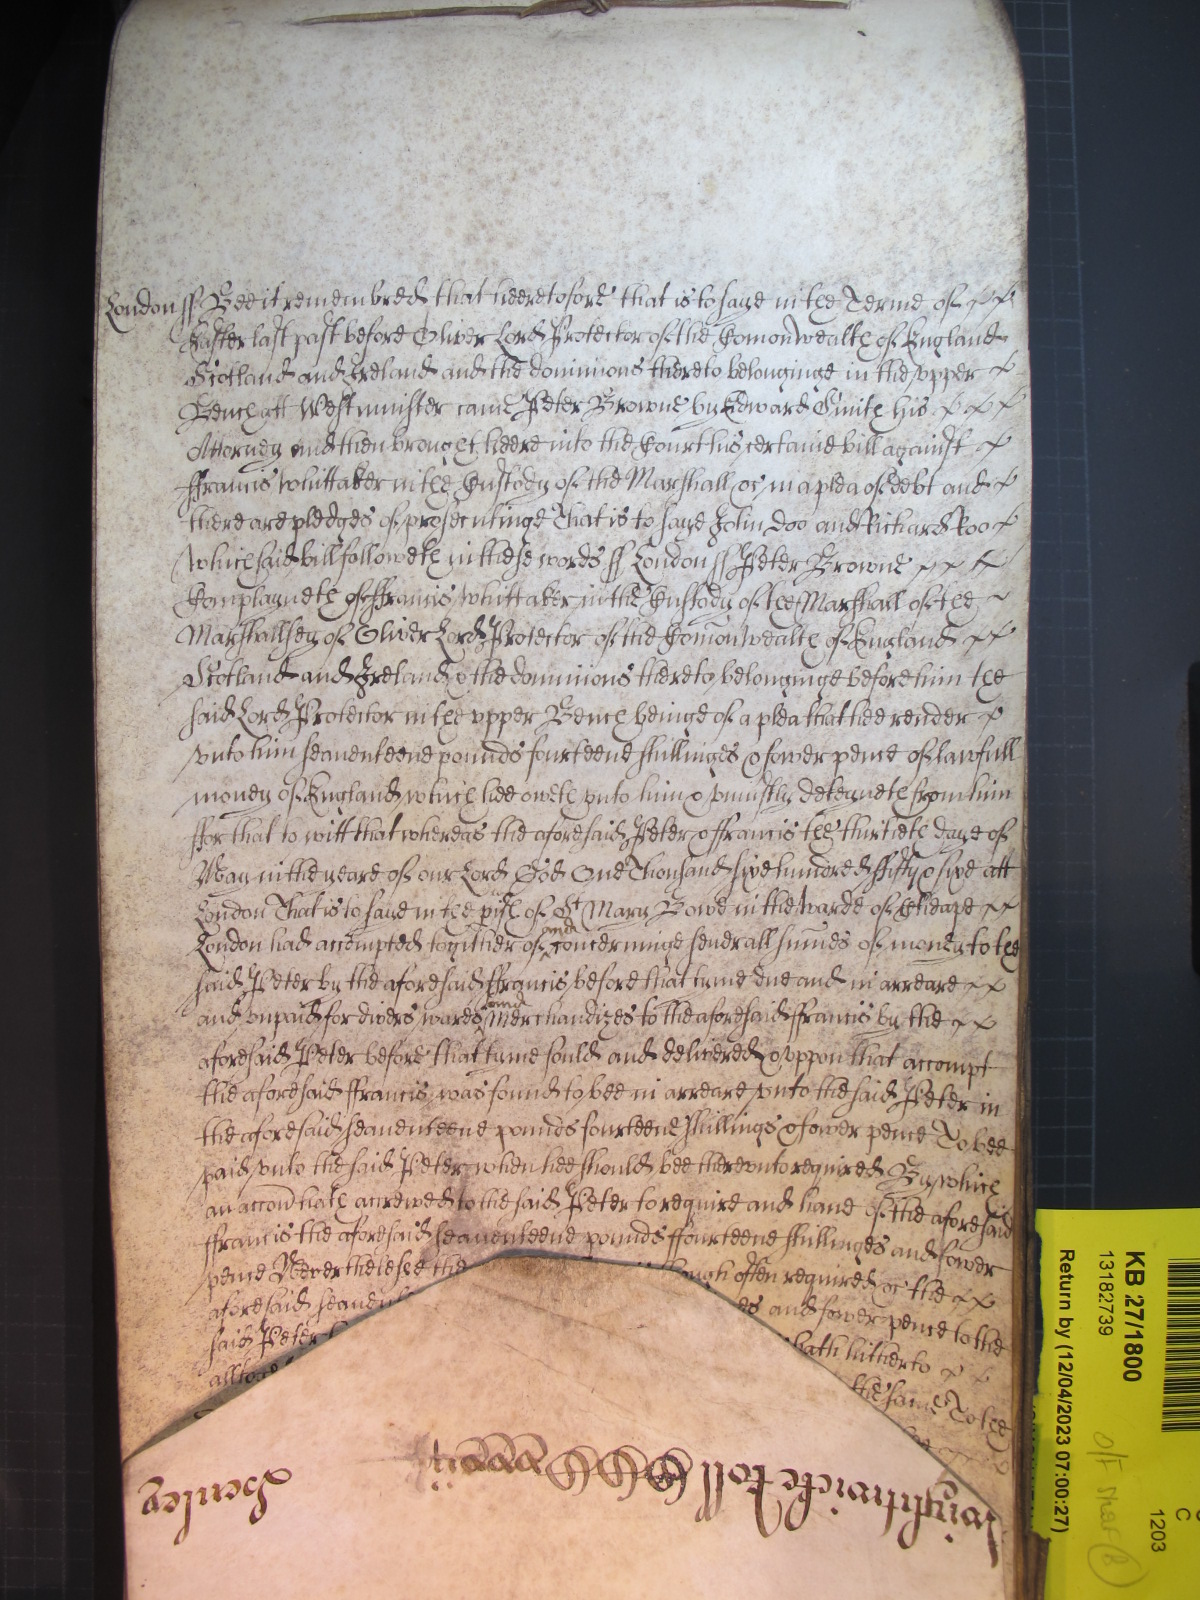 London ss Bee it remembred that heeretofore that is to saye in the Terme of
Easter last past before Oliver Lord Protector of the Comonwealth of England
Scotland and Ireland and the dominions thereto belonginge in the upper
Bench att Westminister came Peter Browne by Edward Smith his
Attorney and then brought heere into the Court his certaine bill against
ffrancis Whittaker in the Custody of the Marshall &c in a plea of debt and
there are pledges of prosecutinge That is to saye John Doo and Richard Roo
Which said bill followeth in these words ss London ss Peter Browne
Complayneth of ffrancis Whittaker in the Custody of the Marshall of the
Marshallsey of Oliver Lord Protector of the Comonwealth of England
Scotland and Ireland & the dominions thereto belonginge before him the
said Lord Protector in the upper Bench beinge of a plea that hee render
unto him seaventeene pounds fourteene shillinges & fower pence of lawfull
money of England which hee oweth unto him & uniustly deteyneth from him
ffor that to witt that whereas the aforesaid Peter & ffrancis the thirtieth daye of
May in the yeare of our Lord God One Thousand sixe hundred fifty & sixe att
London That is to saye in the pish of St Mary Bowe in the warde of Cheape
London had accompted togither of and concerninge severall sumes of money to the
said Peter by the aforesaid ffrancis before that time due and in arreare
and unpaid for divers wares and Merchandizes to the aforesaid ffrancis by the
aforesaid Peter before that time sould and delivered & uppon that accompt
the aforesaid ffrancis was found to bee in arreare unto the said Peter in
the aforesaid seaventeene pounds fourteene shillings & fower pence To bee
paid unto the said Peter when hee should bee thereunto required By which
an accon hath accrewed to the said Peter to require and have of the aforesaid
ffrancis the aforesaid seaventeene pounds ffourteene shillinges and fower
pence Neverthelesse the though often required &c the
aforesaid seavent es and fower pence to the
said Peter hath hitherto
alltog the same To the
Henley
roll
KB 27/1800
13182739
Return by (12/04/2023 07:00:27)
1203
C